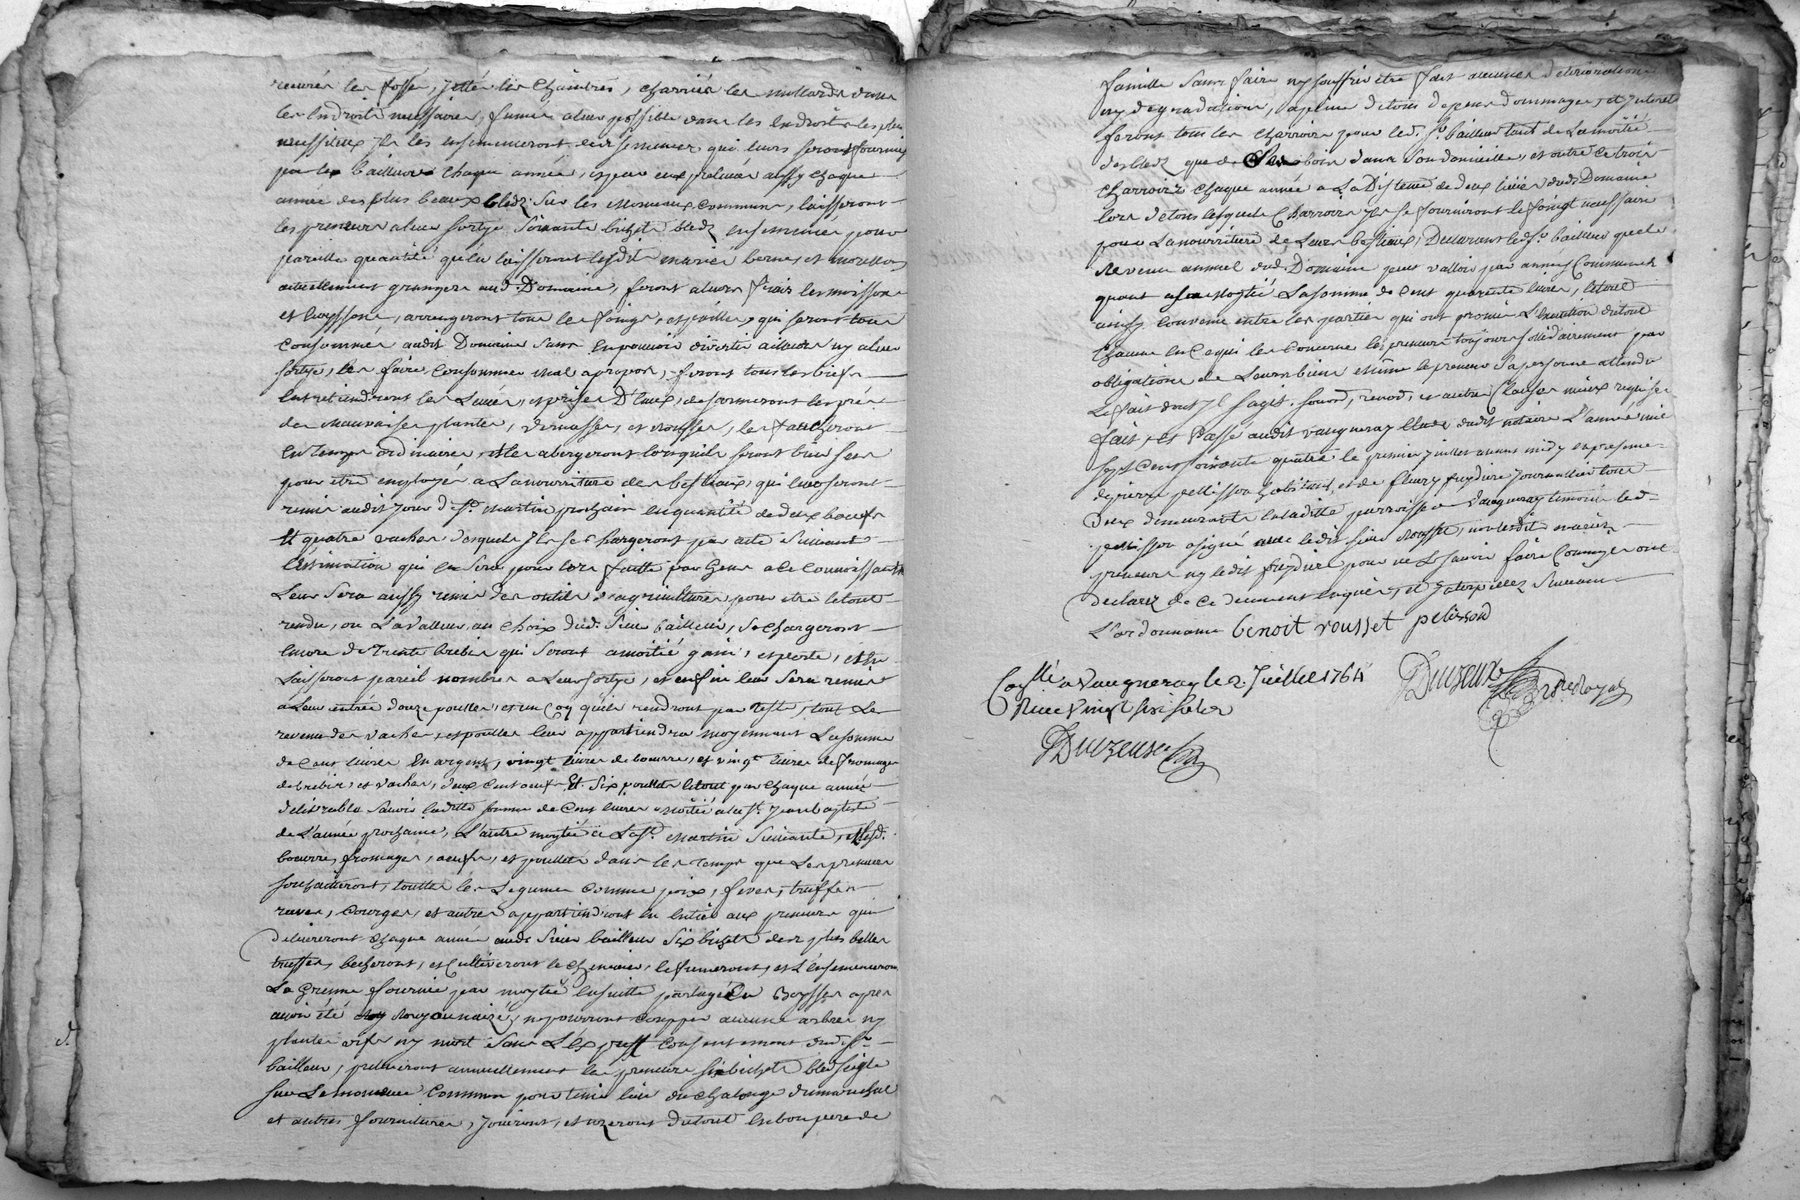 recurés les fossé, jetté les Chaintres, charriés les
les Endroits necessaires, fumés a leur possible dans les Endroits les plus
necessiteux Ils les ensemenceront des semences qui leurs seront fournies
par le bailleur chaque année, apres en preleuée aussy chaque
année des plus beaux bledz sur les Monceaux communs, laisseront
les preneurs a leur sortye soixante bichets bledz ensemencé pour
pareille quantité qu'en laisseront lesdits mariés et
actuellement grangers aud. Domaine, feront a leurs frais les moissons
et arrengeront tous les foings, et pailles, qui seront tous
consommés audit Domaine sans en pouvoir divertir ailleurs ny a leur
sortye, les faire consommer mal apropos, feront tous les biefs
Entretiendront les et prises D'eaux, des prés
des mauvaises plantes, et mousses, les faucheront
en temps ordinaires, et les abergeront lorsquils seront bien secs
pour etre employés a La nourriture des bestiaux, qui leurs seront
remis audit jour de St. Martin prochain en quantité de deux boeufs
Et quatre vaches, desquels Ils se chargeront par acte suivant
L'estimation qui en sera pour lors faitte par Gens a ce connoissants
Leur sera aussy remis des outils d'agriculture, pour etre le tout
rendu, ou La valleur, au choix dud. Sieur bailleur, se chargeront
encore de Trente brebis qui seront a moitié gain, et perte, et en
Laisseront pareil nombre a Leur sortye, et enfin leur sera remis
a Leur entrée douze poulles, et un Coq qu'ils rendront par teste, tout Le
revenu des vaches, et poulles leur appartiendra moyennant La somme
de Cent livres en argent, vingt livres de beurre, et vingt livres de fromages
de brebis, et vaches, deux cent oeufs Et six poullets le tout par chaque année
délivrable savoir laditte somme de Cent livres moitié a la St. Jean baptiste
de L'année prochaine, L'autre moytié a La St. Martin suivante, et lesd.
beurre, fromages, oeufs, et poullets dans les temps que Les preneurs
souhaitteront, touttes les Legumes comme poix, feves, truffes
raves, courges, et autres appartiendront en entier aux preneurs qui
délivreront chaque année audt. sieur bailleur six bichets des plus belles
truffes, becheront, et cultiveront le chenevier, le fumeront, et L'ensemenceront
La Greine fournie par moytié ensuitte partagé apres
avoir été ne pourront coupper aucuns arbres ny
plantes vifs ny morts sans L'exprest consentement dud. Sr.
bailleur, preleveront annuellement les preneurs six bichets bled seigle
sur Le monceau commun pour tenir lieu du marechal
et autres fournitures, jouiront, et uzeront du tout en bon pere de
famille sans faire ny souffrir etre fait aucunes deteriorations
ny degradations, a peine de tous depens dommages, et interet
feront tous les charroirs pour led. Sr. bailleur tant de La moitié
des bledz que de bois dans son domicille, et outre ce trois
charroirs chaque année a La Distence de deux lieües dudt. Domaine
lors de tous lesquels Charroirs Ils se fourniront le foingt necessaire
pour La nourriture de Leurs bestiaux, Declarant led. Sr. bailleur que le
Revenu annuel dud. Domaine peut valloir par années Communes
quant a sa moytié La somme de Cent quarente livres, le tout
ainsy convenu entre les parties qui ont promis L'execution du tout
Chacun en ce qui les concerne les preneurs toujours sollidairement par
obligations de Leurs biens et même le preneur sa personne attendu
Le fait dont il s'agit, soum., renon., et autres Clauses mieux requises
fait, et Passé audit vaugneray Etude dudit notaire L'année mil
sept cent soixante quatre le premier juillet avant midy en presence
de pierre pellisson habitant, et de fleury journallier tous
deux demeurants en laditte parroisse de vaugneray temoins led.
pellisson a signé avec ledit sieur Rousset, non lesdits mariés
preneurs ny ledit pour ne Le savoir faire Comme ils ont
declarez de ce deuement enquis, et Interpellez suivant
L'ordonnance benoit rousset pelisson
Conllé a Vaugneray le 2. Juillet 1764
Receu vingt six sols